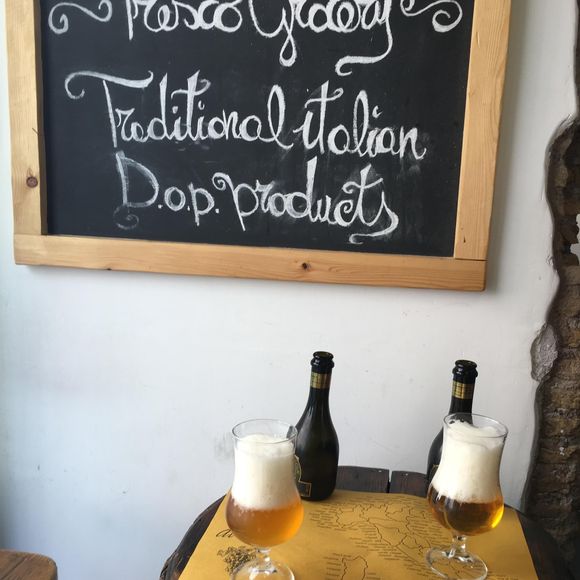 Fresco Grocery
Traditional italian
D.o.p. products